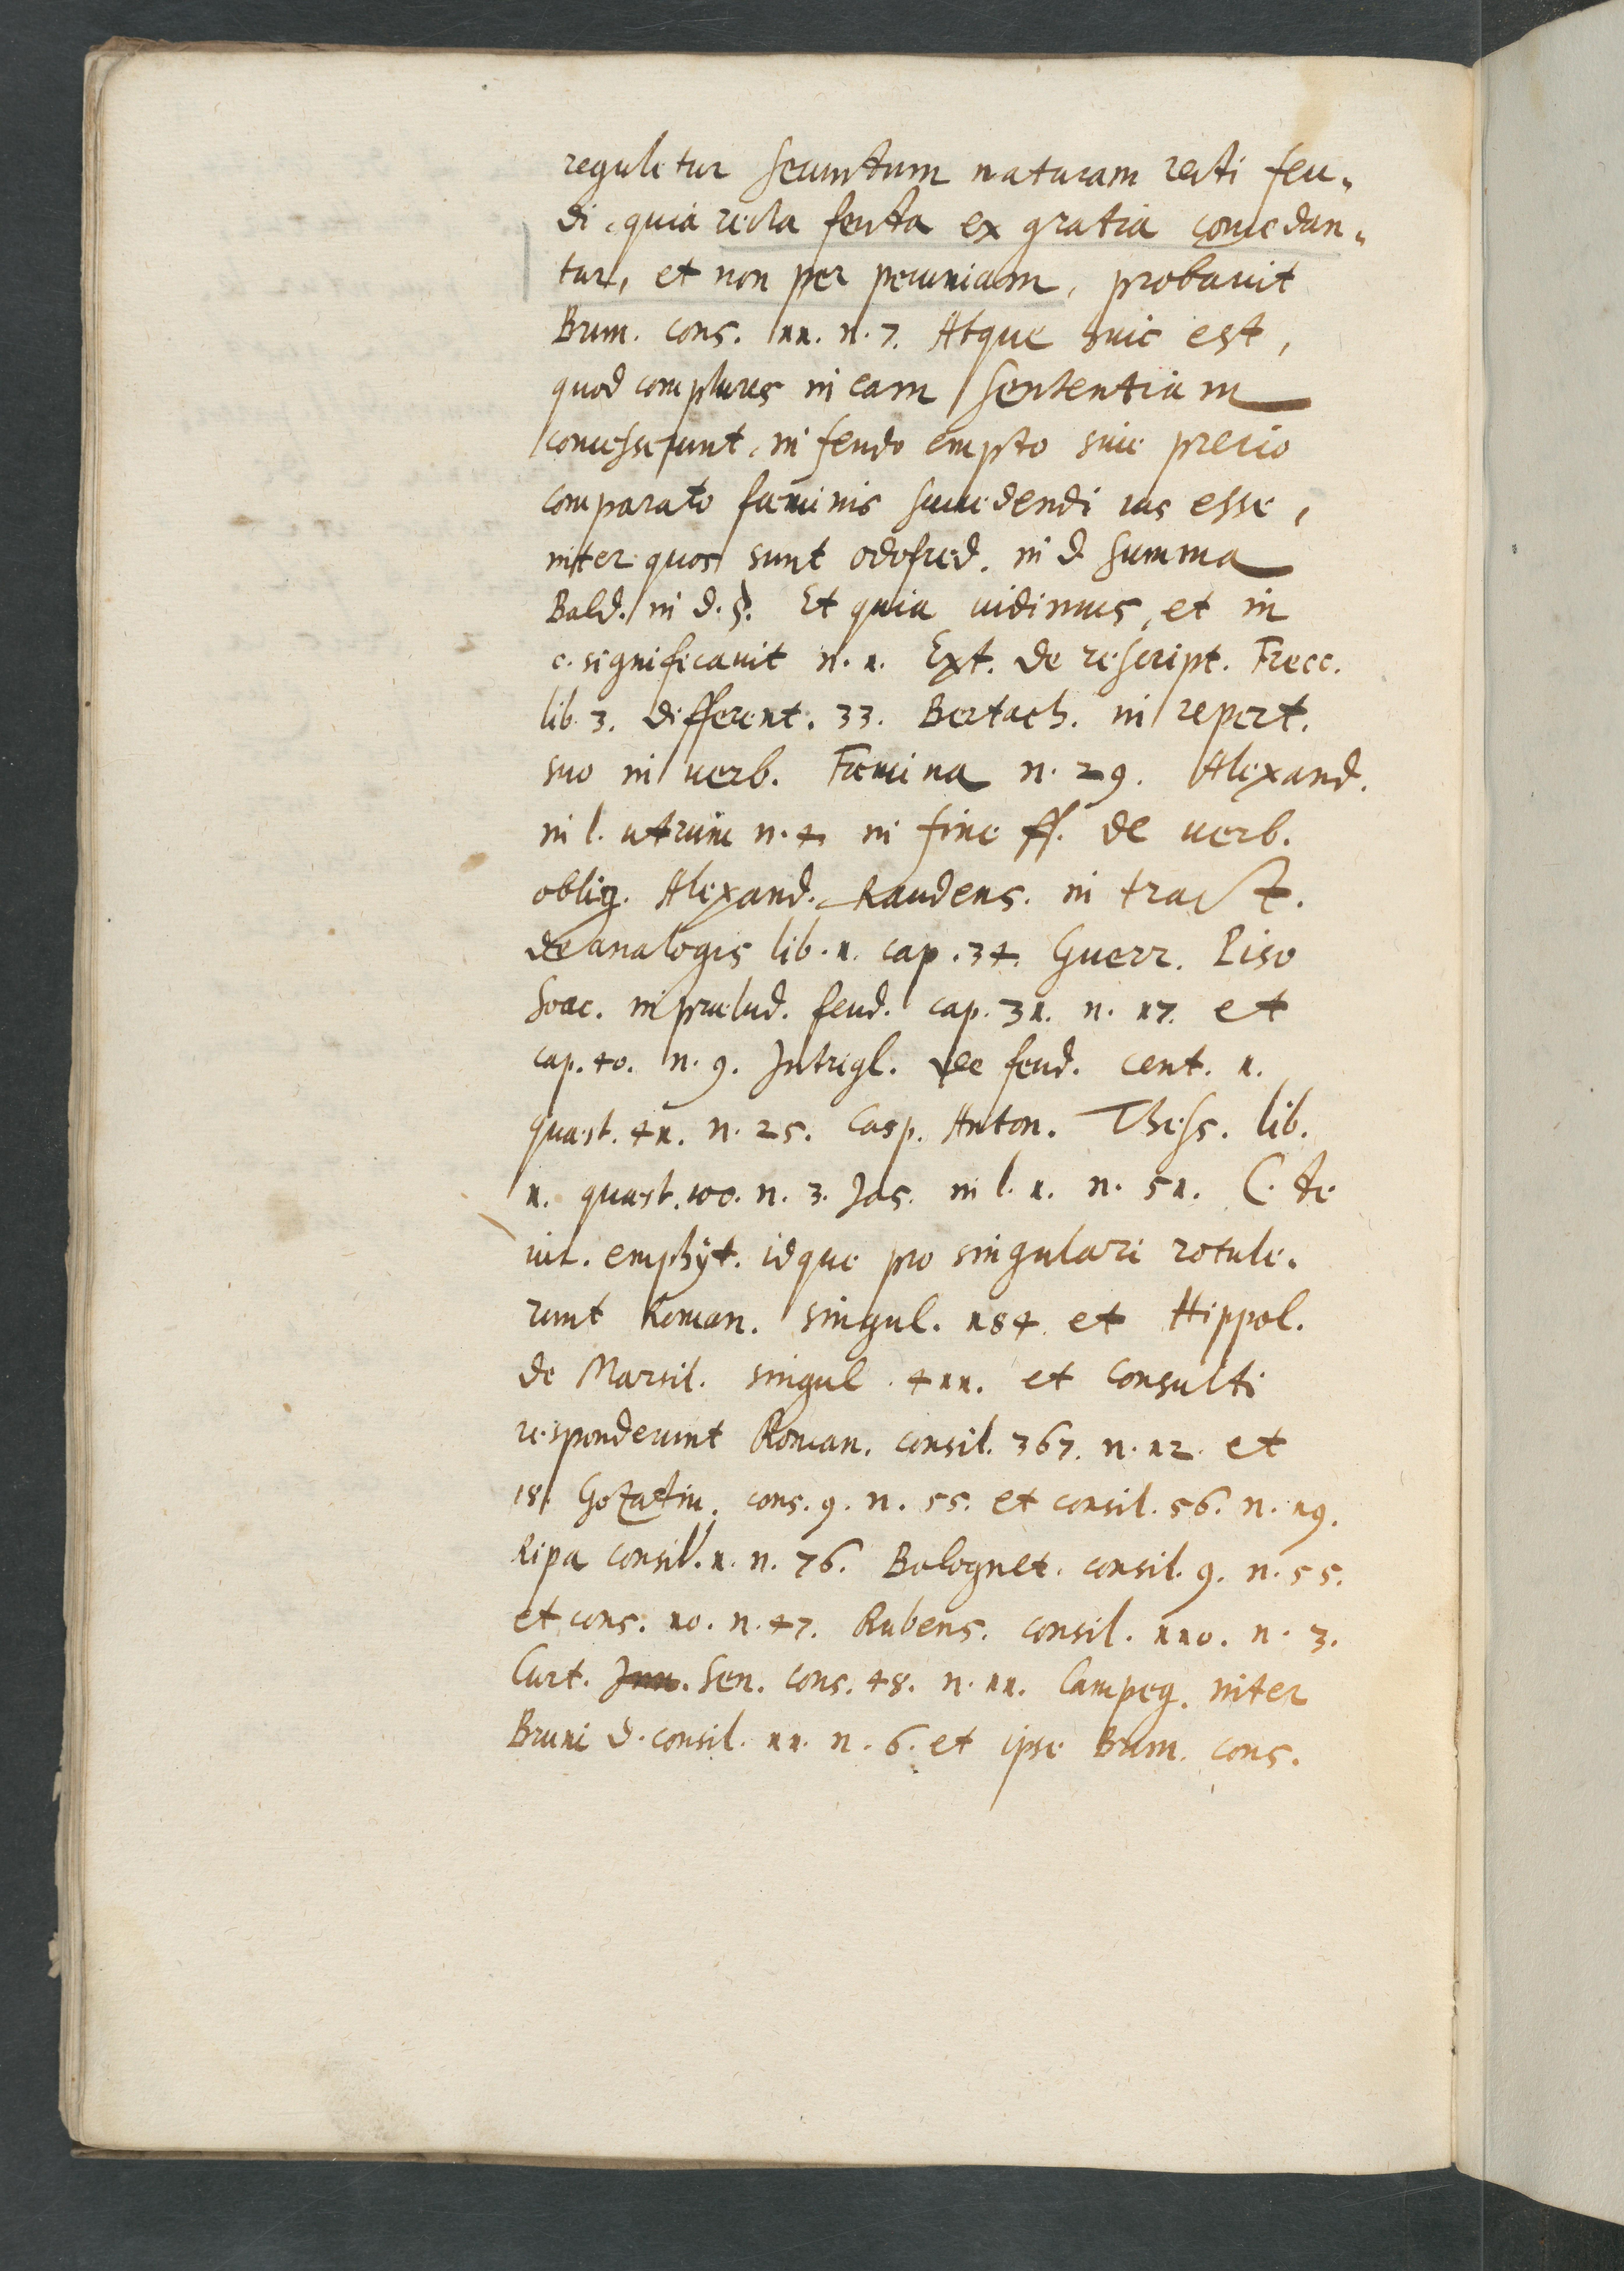 reguletur secundum naturam recti feu-
di, quia recta feuda ex gratia conceddan-
tur, et non per pecuniam, probavit
Brun. cons. 11. n. 7. Atque huic est,
quod complures in eam sententiam
concesserunt, in feudo empto sive precio
comparato fæminis succedendi ius esse,
inter quos sunt Odofred. in d. summa
Bald. in d. §. Et quia vidimus, et in
c. significavit n. 1. Ext. de rescript. Frecc.
lib. 3. different. 33. Bertach. in repert.
suo in verb. Fæmina n. 29. Alexand.
in l. utrum n. 4. in fine ff. de verb.
oblig. Alexand. Raudens. in tract.
de analogis lib. 1. cap. 34. Guerr. Piso
Soac. in prælud. feud. cap. 31. n. 17. et
cap. 40. n. 9. Intrigl. de feud. cent. 1.
quæst. 41. n. 25. Casp. Anton. Thess. lib.
1. quæst. 100. n. 3. Jas. in l. 1. n. 51. C. de
iur. emphyt. idque pro singulari rotule-
runt Roman. singul. 184. et Hippol.
de Marsil. singul. 411. et consulti
responderunt Roman. consil. 367. n. 12. et
18. Gozadin. cons. 9. n. 55. et consil. 56. n. 19.
Ripa consil. 1. n. 76. Bolognet. consil. 9. n. 55.
et cons. 10. n. 47. Rubens. consil. 110. n. 3.
Curt. Jun. Sen. cons. 48. n. 11. Campeg. inter
Bruni d. consil. 11. n. 6. et ipse Brun. cons.